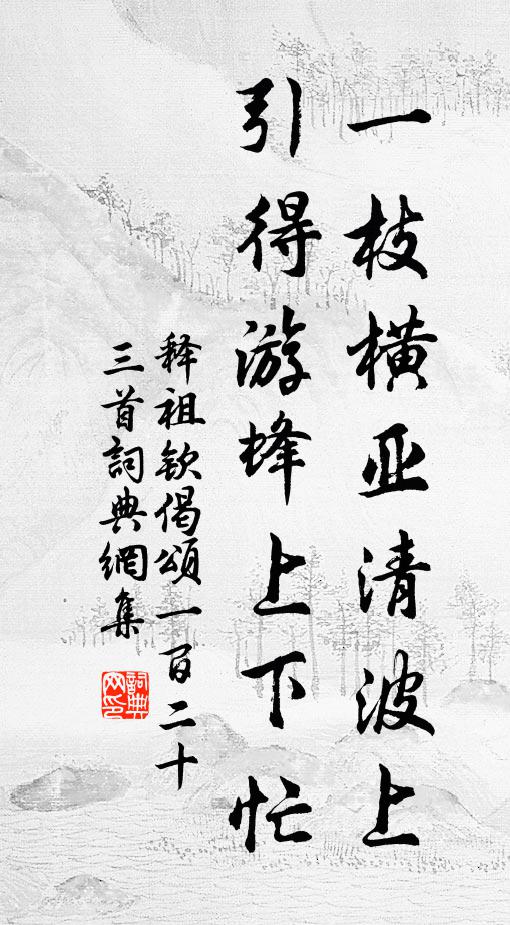 一枝橫亚清波上
引得游蜂上下忙
释祖钦偈頌一百二十
三首詞典網集
詞典网印